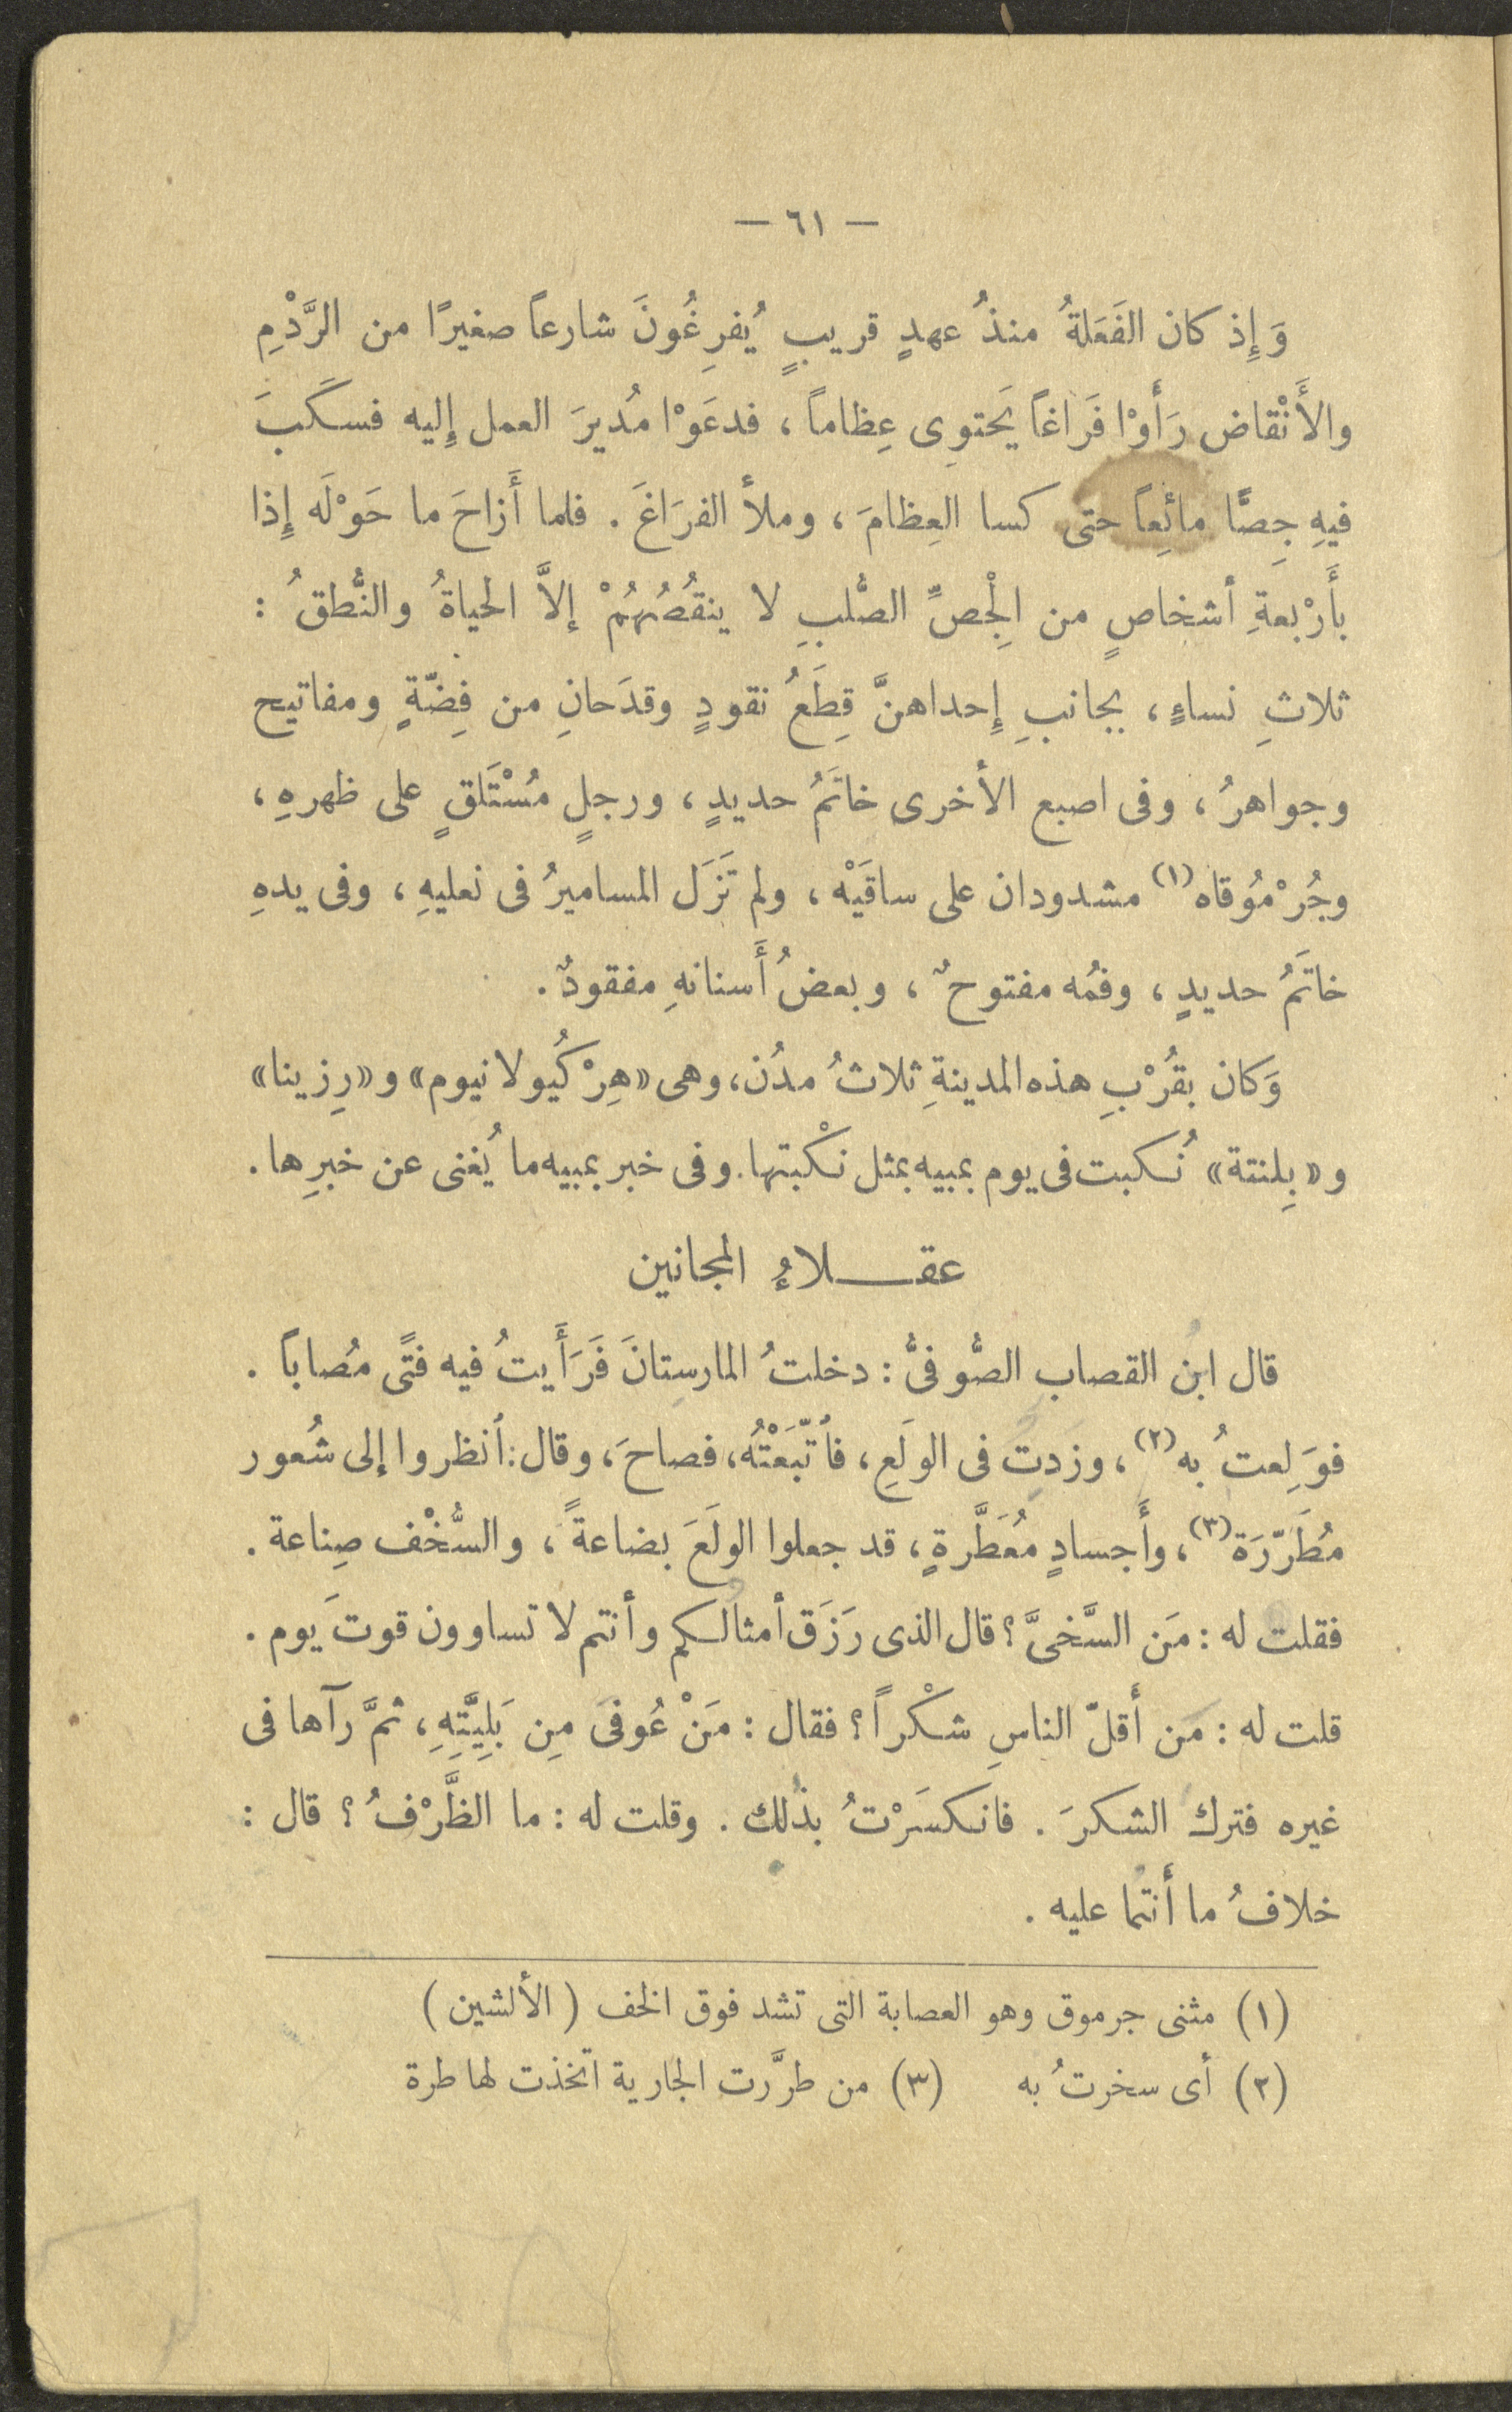 — ٦١ —
وَإِذ كان الفَعَلةُ منذُ عهدٍ قريبٍ يُفرِغُونَ شارعاً صغيرًا من الرَّدْمِ
والأَنْقاض رَأَوْا فَرَاغاً يَحتوِى عِظاماً ، فدعَوْا مُديرَ العمل إِليه فسكَبَ
فيهِ جِصًّا مائِعاً حتى كسا العِظامَ ، وملأ الفرَاغَ . فلما أَزاحَ ما حَوْلَه إِذا
بأَرْبعةِ أشخاصٍ من الْجِصِّ الصُّلبِ لا ينقُصُهُمْ إلاَّ الحياةُ والنُّطقُ :
ثلاثِ نساءٍ ، بجانبِ إِحداهنَّ قِطَعُ نقودٍ وقدَحانِ من فِضّةٍ ومفاتيح
وجواهرُ ، وفى اصبع الأخرى خاتَمُ حديدٍ ، ورجلٍ مُسْتَلقٍ على ظهرهِ ،
وجُرْمُوقاه (١) مشدودان على ساقَيْه ، ولم تَزَل المساميرُ فى نعليهِ ، وفى يدهِ
خاتَمُ حديدٍ ، وفمُه مفتوحٌ ، وبعضُ أَسنانهِ مفقودٌ .
وَكان بقُرْبِ هذه المدينةِ ثلاثُ مدُن ، وهى «هِرْكُيولانيوم» و «رِزينا»
و «بِلنتة» نُكبت فى يوم بمبيه بمثل نكْبتها . وفى خبر بمبيه ما يُغنى عن خبرِها .
عقلاءُ المجانين
قال ابن القصاب الصُّوفىُّ : دخلتُ المارستانَ فَرَأَيتُ فيه فتًى مُصاباً .
فوَلِعتُ به (٢) ، وزدت فى الولَعِ ، فأتّبَعْتُه ، فصاحَ ، وقال : أنظروا إلى شُعور
مُطَرّرَة (٣) ، وأَجسادٍ مُعَطَّرةٍ ، قد جعلوا الولَعَ بضاعةً ، والسُّخْف صِناعة .
فقلت له : مَن السَّخىَّ ؟ قال الذى رَزَق أمثالكم وأنتم لا تساوون قوتَ يوم .
قلت له : مَن أَقلّ الناسِ شكْراً ؟ فقال : مَنْ عُوفىَ مِن بَلِيَّتِهِ ، ثمَّ رآها فى
غيره فترك الشكرَ . فانكسَرْتُ بذلك . وقلت له : ما الظَّرْفُ ؟ قال :
خلافُ ما أَنتما عليه .
(١) مثنى جرموق وهو العصابة التى تشد فوق الخف ( الألشين )
(٢) أى سخرتُ به (٣) من طرَّرت الجارية اتخذت لها طرة